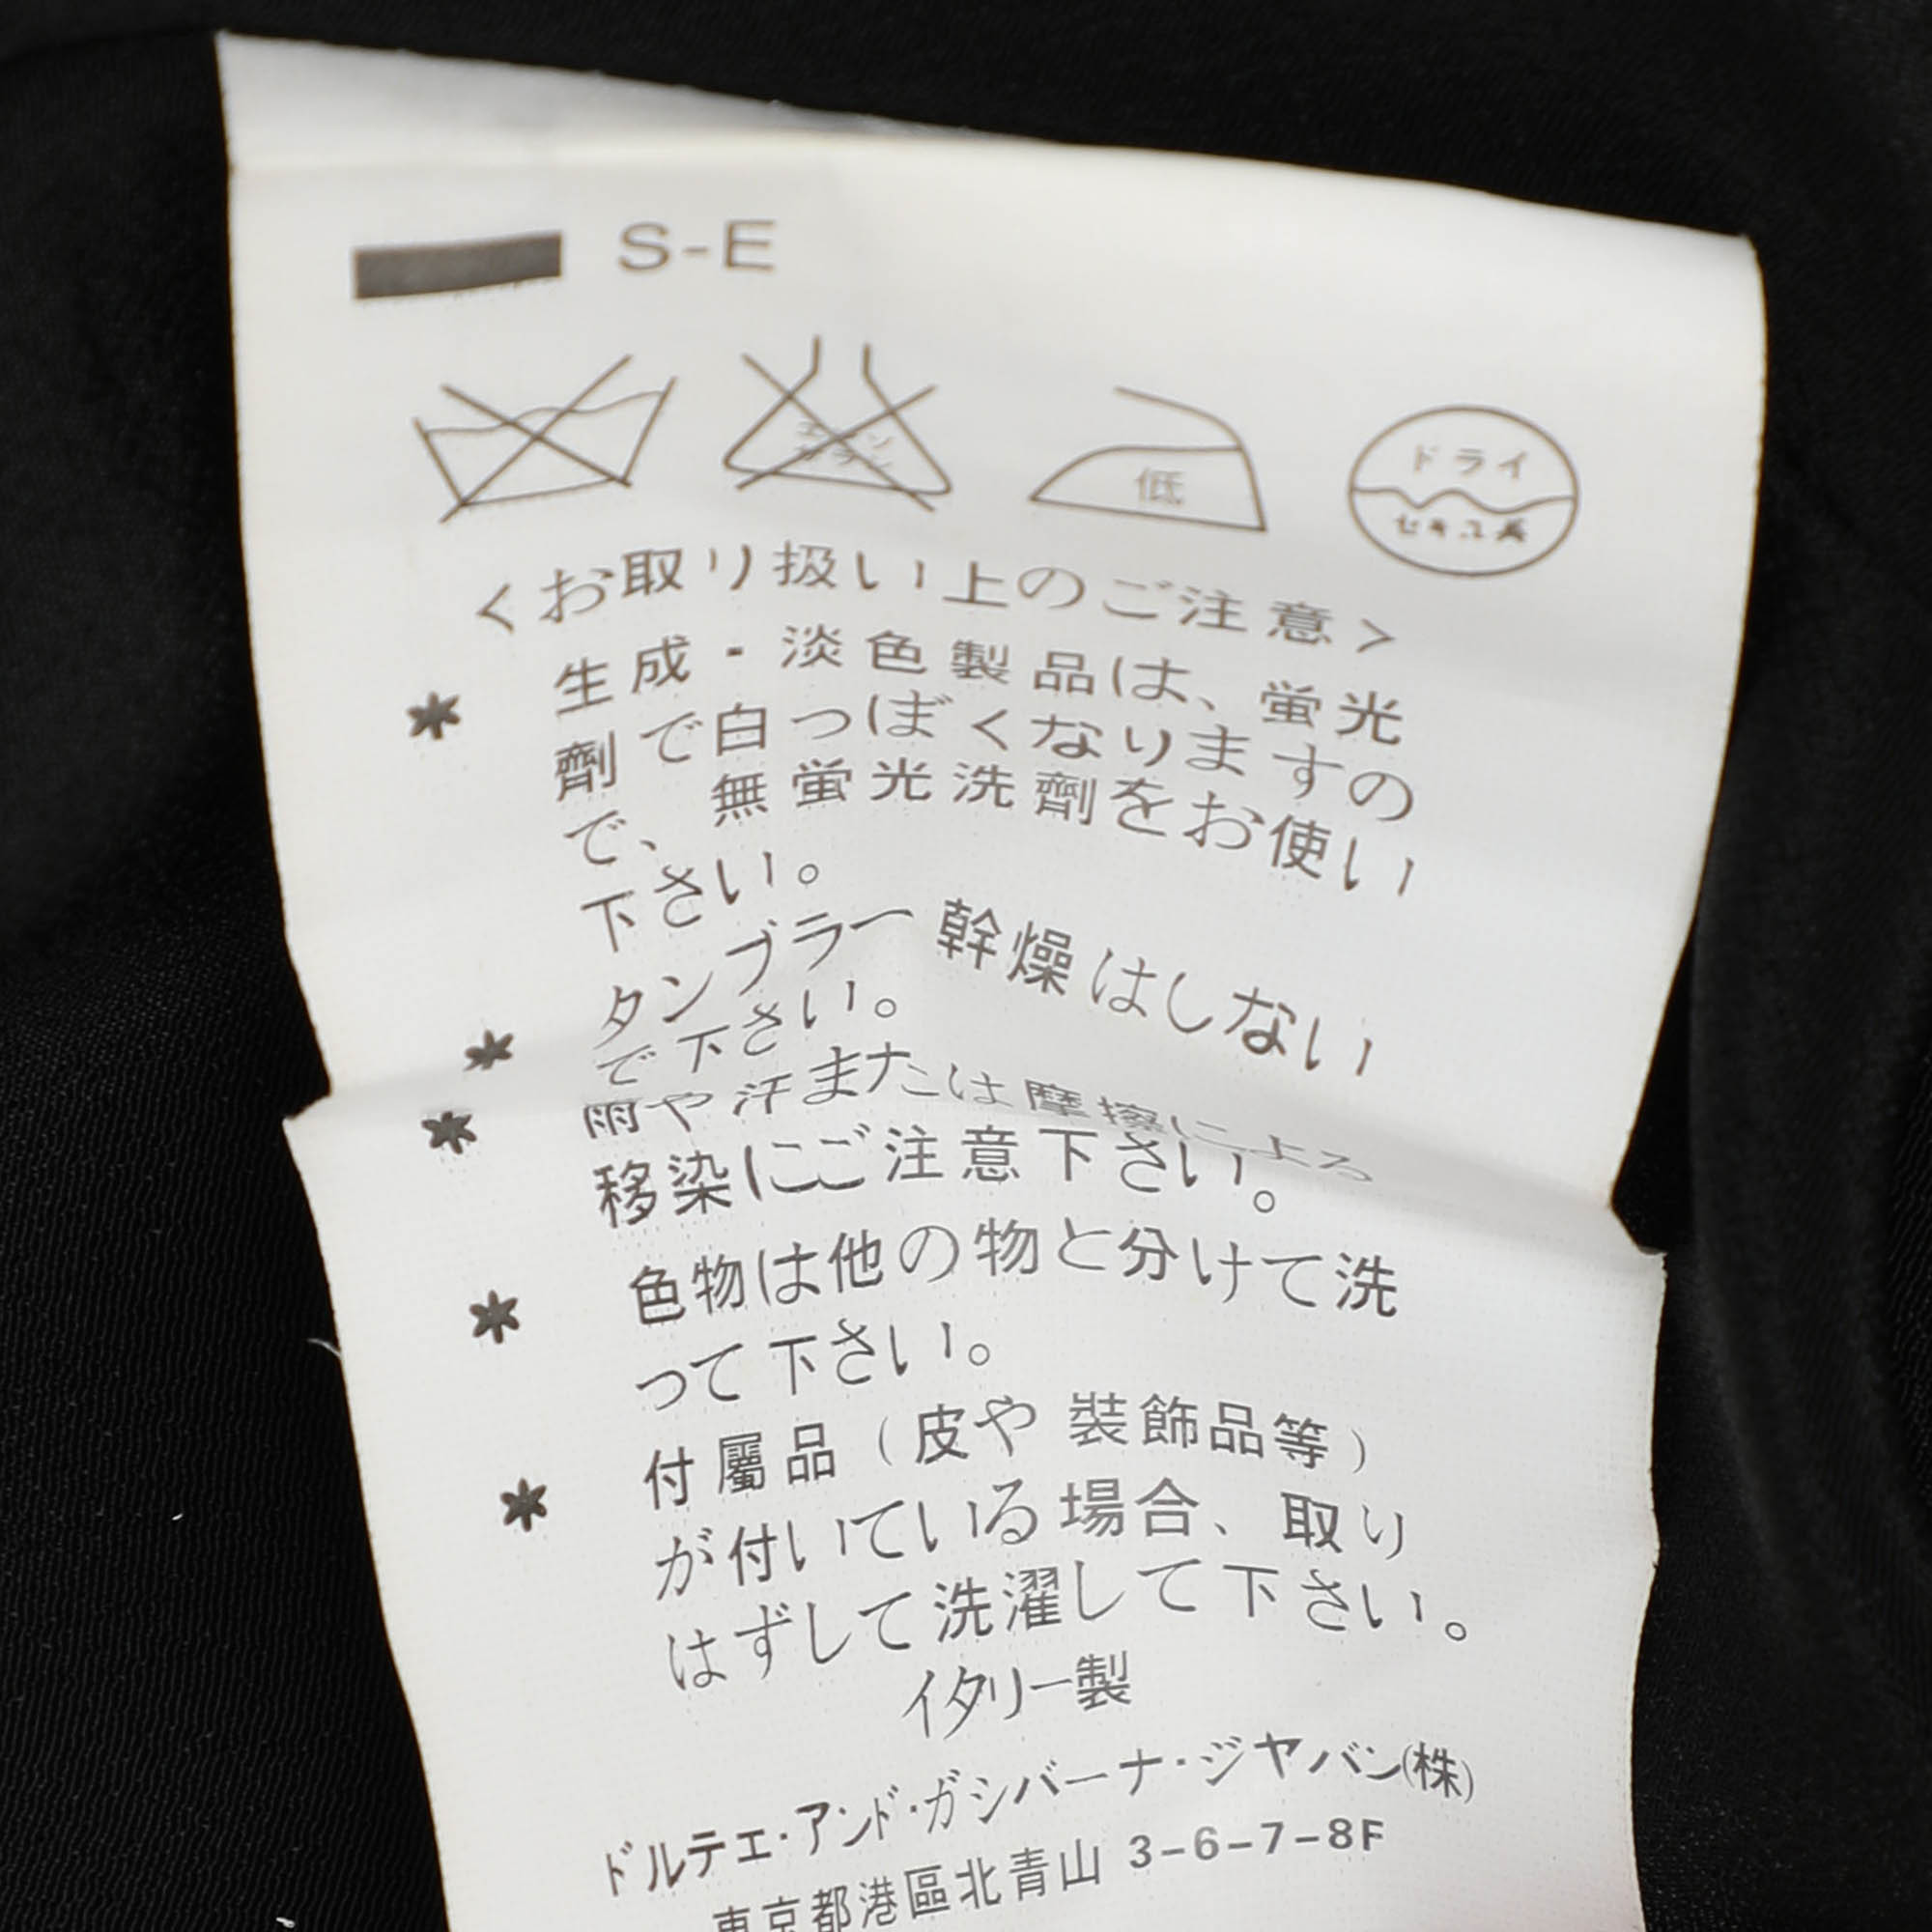 S-E
低
ドライ
セキユ系
<お取り扱い上のご注意>
* 生成・淡色製品は、蛍光
劑で白っぽくなりますの
で、無蛍光洗劑をお使い
下さい。
* タンブラー幹燥はしない
で下さい。
* 雨や汗または摩擦による
移染にご注意下さい。
* 色物は他の物と分けて洗
って下さい。
* 付屬品(皮や装飾品等)
が付いている場合、取り
はずして洗濯して下さい。
イタリー製
ドルテェ・アンド・ガシバーナ・ジヤバン(株)
東京都港區北青山 3-6-7-8F